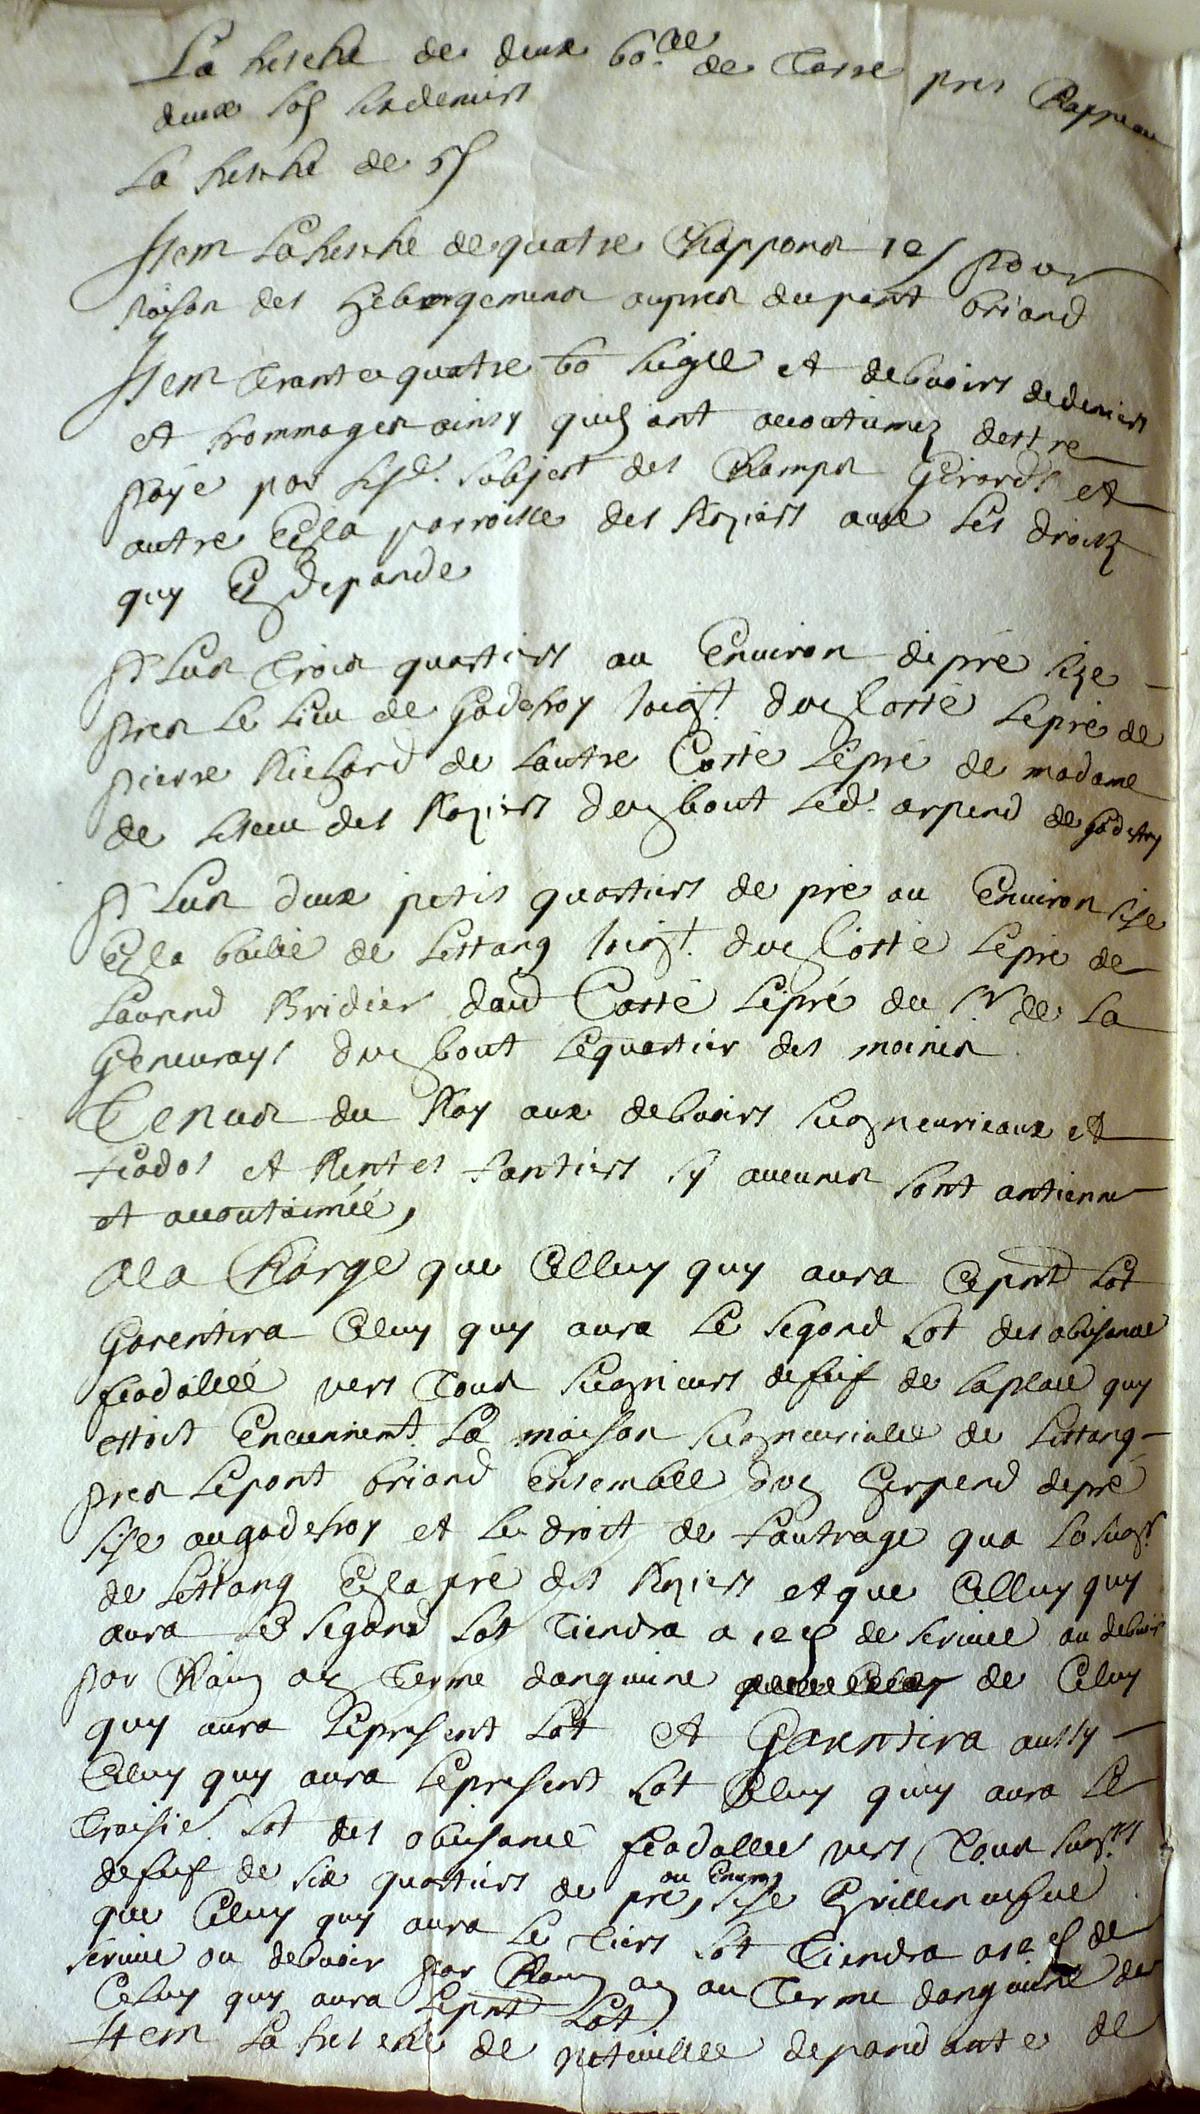 La herche de deux bo.ᶜᵉᵉ de Terre pres
deux sols six deniers
La herche de 5ˢ
Item La herche de quatre Chappons 12ˢ pour
raison des hebergemens aupres du pont briand
Item trante quatre bo seigle et debvoirs de deniers
et frommages ainsy quilz ont accoutumez destre
payé par lesd. subject des Champs Girards et
autre En la parroisse des Roziers avec les droitz
quy En depande
Plus trois quartiers ou Environ de pré size
pres le lieu de Godefroy joigᵗ dun Costé le pré de
pierre Richard de lautre Costé le pré de madame
de des Roziers dun bout led. arpend de Godefroy
Plus deux petis quartiers de pré ou Environ sise
En la boelie de Lestang joigᵗ dun Costé le pré de
Laurend Bridier daud Costé le pré du Sʳ de La
Genevrays dun bout le quartier des moines
Tenus du Roy aux debvoirs seigneuriaux et
feodos et Rentes fontiers sy aucunes sont antienne
et accoutumée,
A la Charge que Celluy quy aura Ce pnt Lot
Garentira Celuy quy aura Le segond Lot des obeisance
feodallé vers Tous seigneurs de fief de la place quy
estoit Encienemᵗ La maison seigneurialle de Lestang
pres le pont briand Ensemble dun herpend de pré
sise au godefroy et le droit de fautrage qua la seigʳ
de Lestang En la pré des Roziers et que Celluy quy
aura Le segond Lot Tiendra a 12 ˢ de service ou debvoir
par Chaun an Terme dangevine de Celuy
quy aura le present Lot et Garentira aussy
Celuy quy aura le present Lot Celuy quy aura Le
Troisie. Lot des obeisance feodalle vers Tous seigʳˢ
de fief de six quartiers de pré, ou Environ sise En villeneufve
que Celuy quy aura Le Tiers Lot Tiendra a 12 ˢ de
service ou debvoir par Chaun an au Terme dangevine de
Celuy quy aura le pnt Lot
Item La herche de depandante de